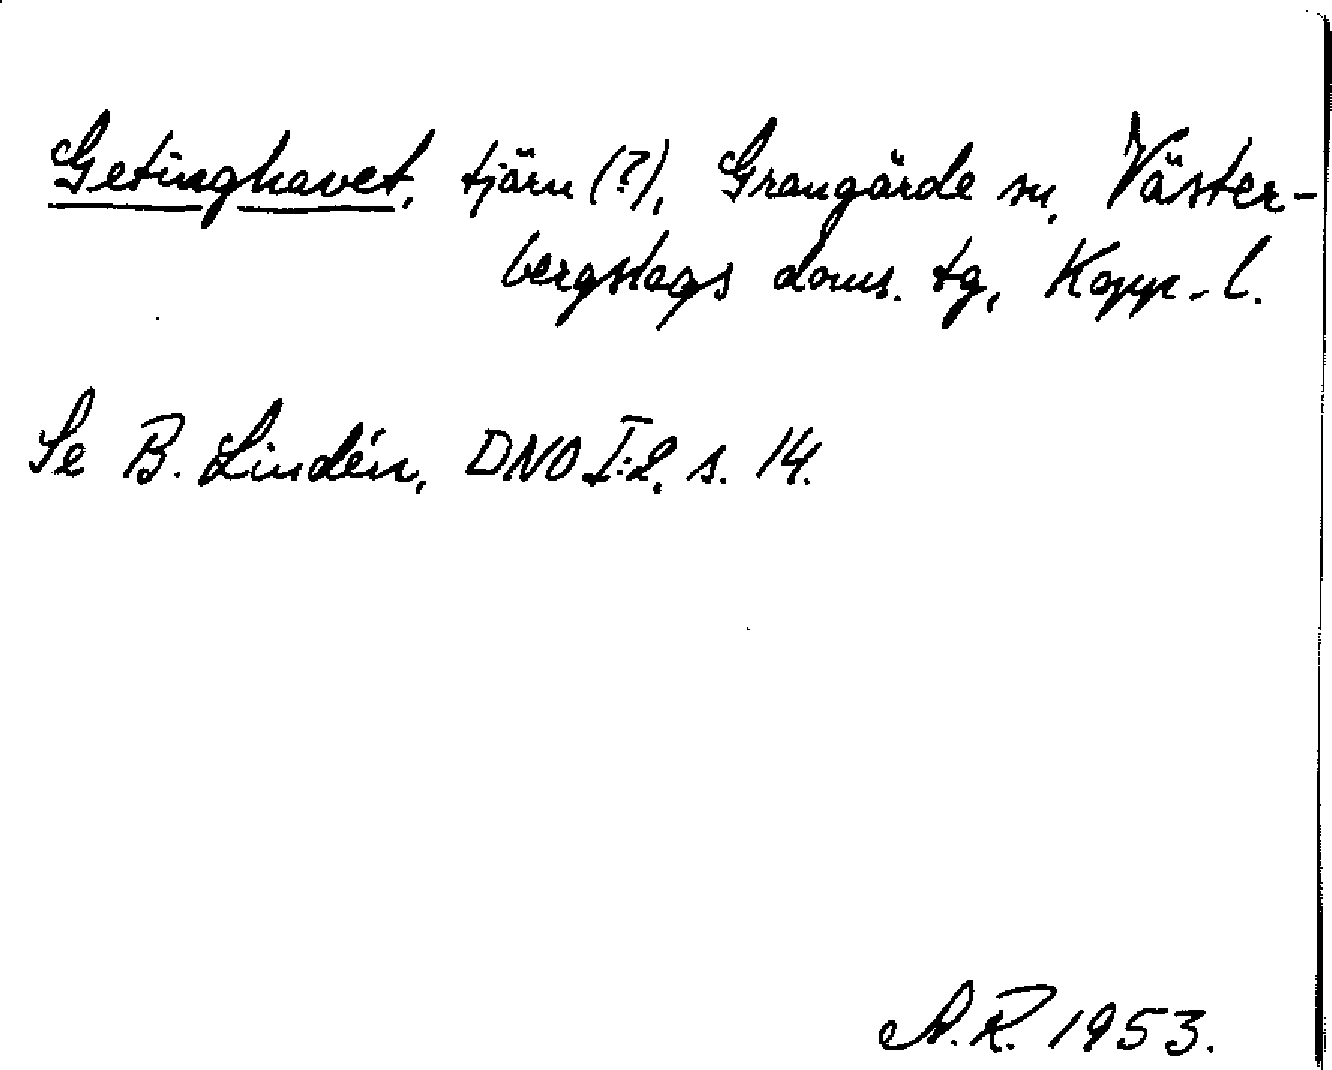 Getinghavet, tjärn (?), Grangärde sn, Väster-
bergslags doms. tg, Kopp-l.
Se B. Lindén, DNO I:2, s. 14.
A.R. 1953.